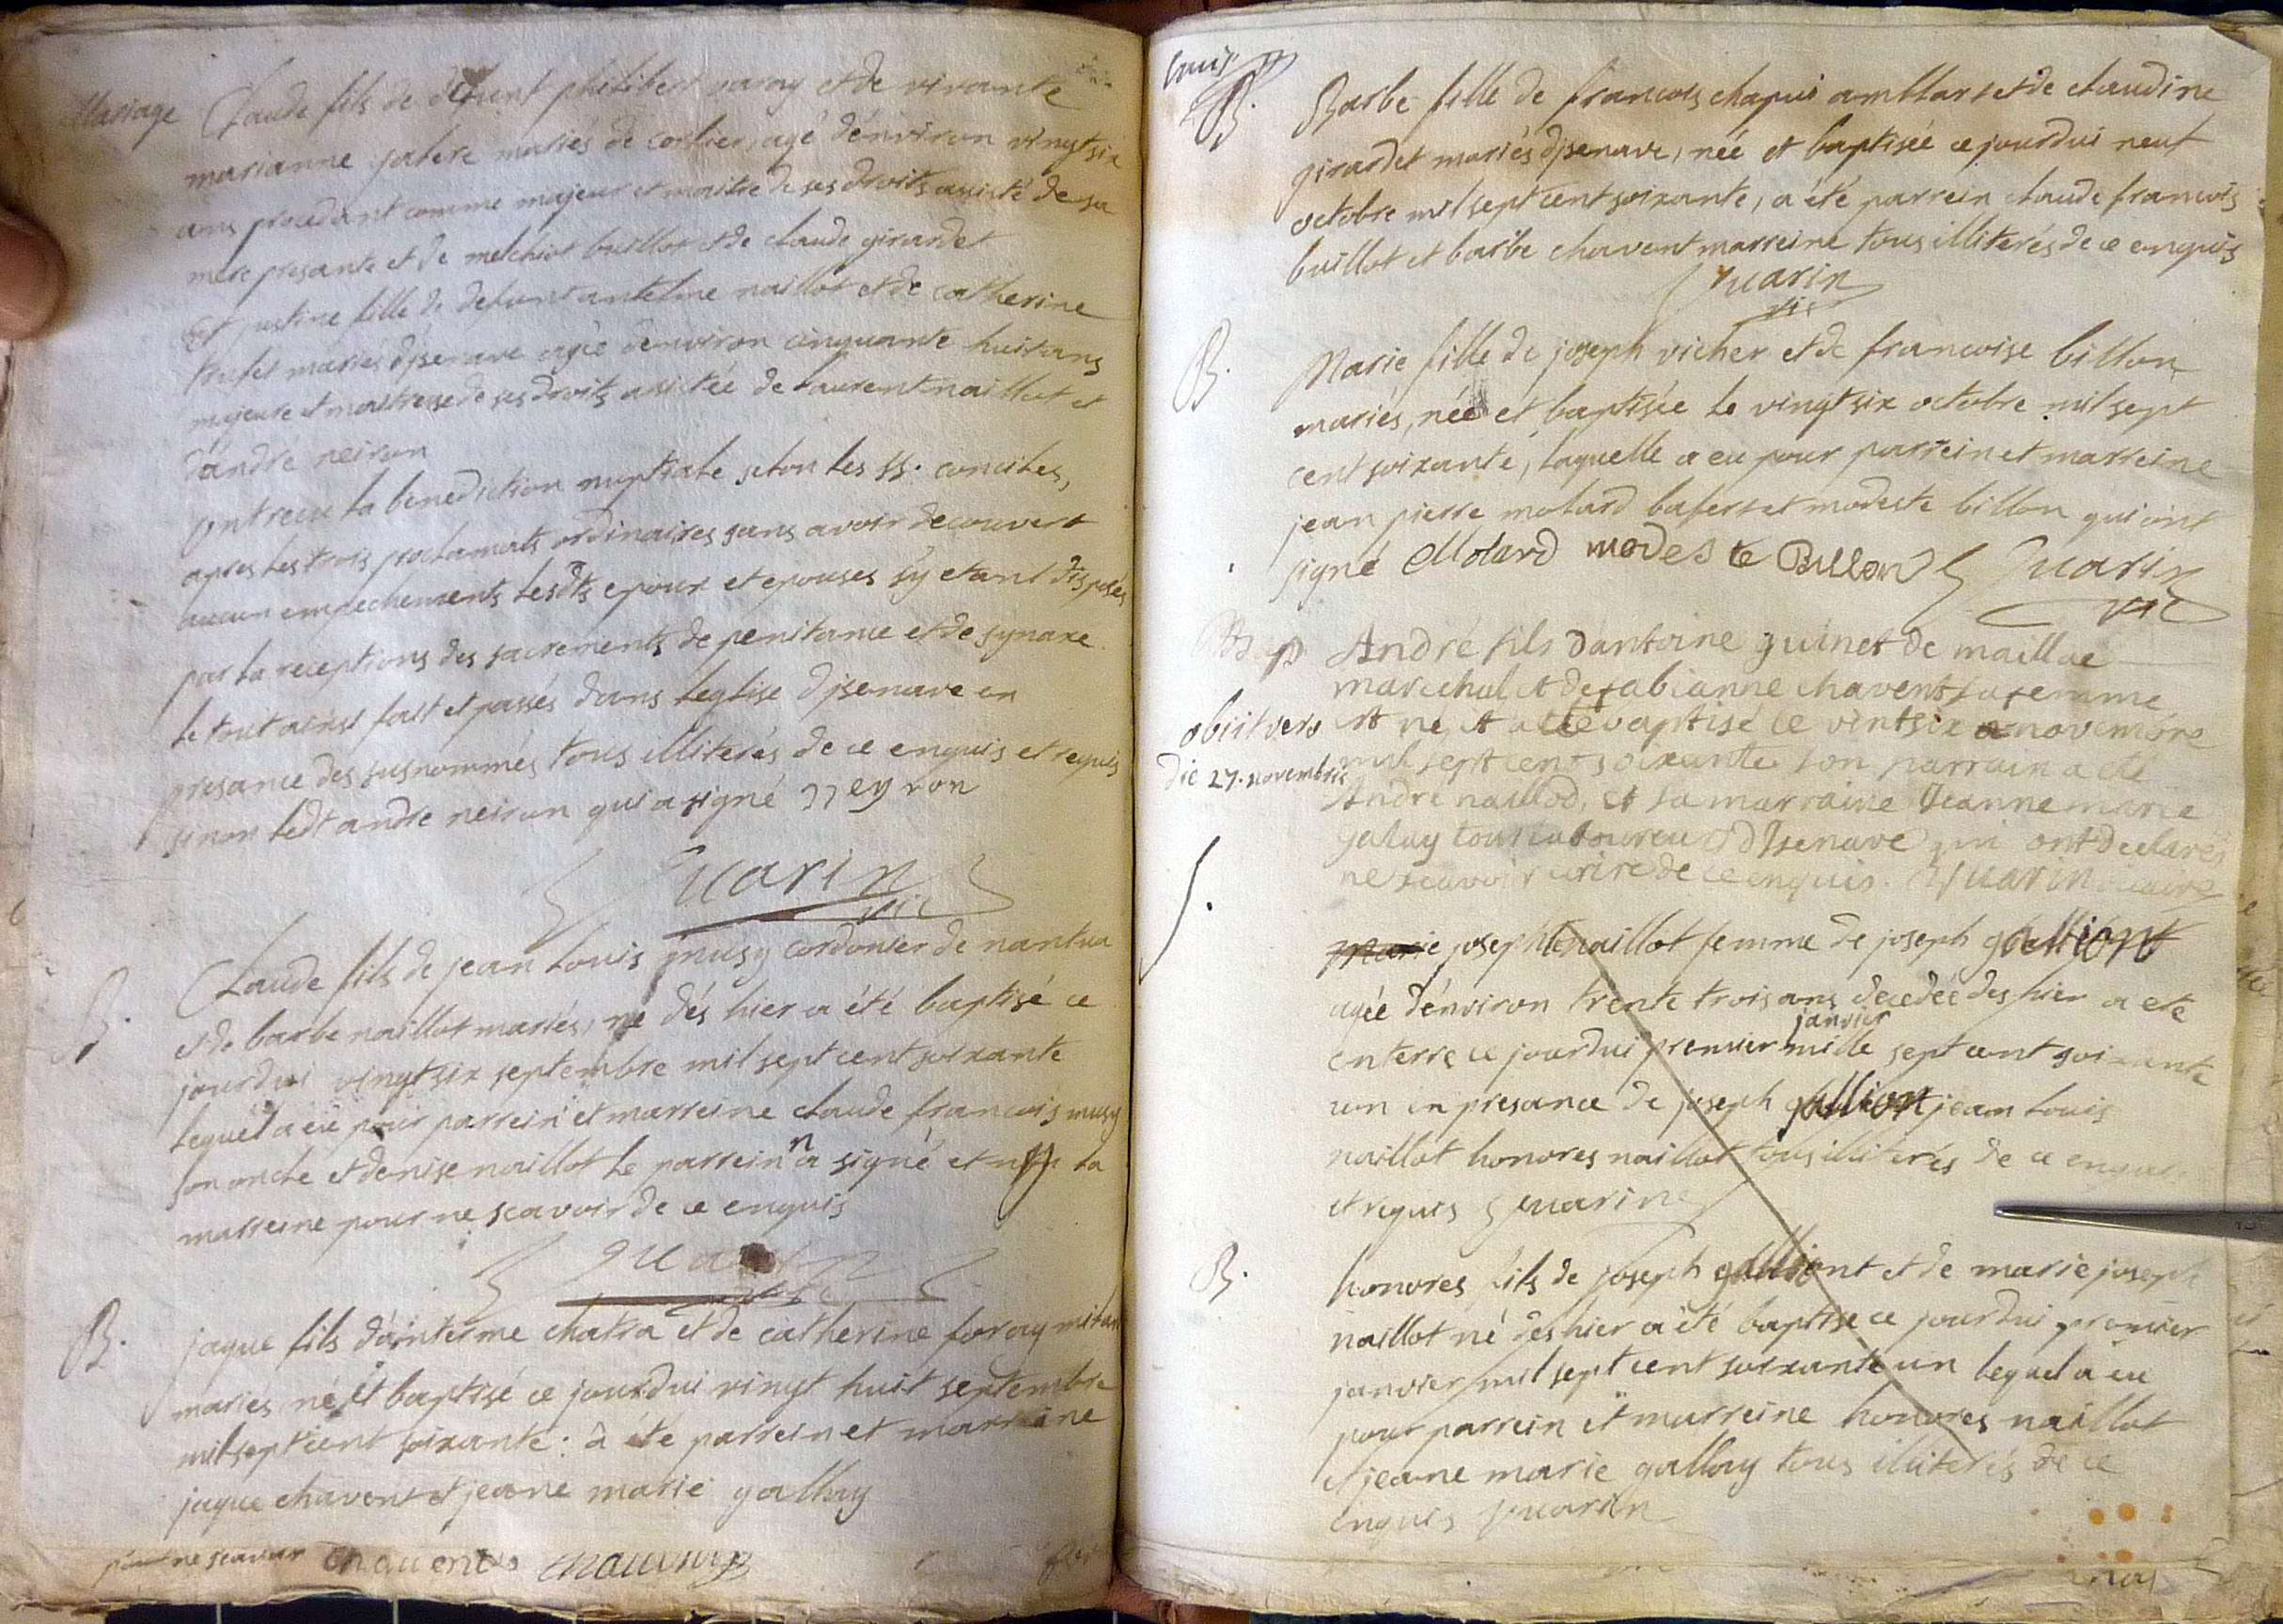 Mariage Claude fils de défunt philibert varay et de vivante
marianne galere mariés de corlier, agé d'environ vingt six
ans procedant comme majeur et maitre de ses droits assisté de sa
mere presante et de melchiot buillot et de claude girardet
Et justine fille de defunt antelme naillot et de catherine
mariés disenave agée denviron cinquante huit ans
majeure et maitresse de ses droits assistée de laurent naillot et
d'andré neiron
ont receu la benediction nuptiale selon les ss. conciles,
apres les trois proclamats ordinaires sans avoir decouvert
aucun empechements lesdts epoux et epouses sÿ etant disposés
par la receptions des sacrements de penitance et de synaxe
le tout ainsi fait et passés dans leglise disenave en
presance des susnommés tous illiterés de ce enquis et requis
sinon ledt andré neiron qui a signé neyron
Guarin
vic
B. Claude fils de jean louis musy cordonier de nantua
et de barbe naillot mariés, né dés hier a été baptisé ce
jourdui vingt six septembre mil sept cent soixante
lequel a eü pour parrein et marreine claude francois musy
son oncle et denise naillot le parrein a signé et non la
marreine pour ne scavoir de ce enquis
Guarin
vic
B. jaque fils d'ainterme chatra et de catherine foray
mariés né et baptisé ce jourdui vingt huit septembre
mil sept cent soixante. à été parrein et marreine
jaque chavent et jeane marie gallay
pour ne scavoir chavent
B. Barbe fille de francois chapui amblart et de claudine
girardet mariés disenave, née et baptisée ce jourdui neuf
octobre mil sept cent soixante, a été parrein claude francois
buillot et barbe chavent marreine tous illiterés de ce enquis
Guarin
vic
B. Marie fille de joseph vicher et de francoise billon
mariés, née et baptisée le vingt six octobre mil sept
cent soixante, laquelle a eu pour parrein et marreine
jean pierre molard bafert et modeste billon qui ont
signé Molard modeste Billon Guarin
vic
Bap André fils dantoine guinet de maillac
marechal et de fabianne chavent sa femme
obiit vero est né, et a été baptisé ce vintsix novembre
die 27. novembris mil sept cent soixante son parrain a eté
André naillod, et sa marraine Jeanne marie
galay tous laboureurs dIsenave qui ont declarés
ne scavoir ecrire de ce enquis. Guarin vicaire
S. Marie josephe naillot femme de joseph galliont
agée d'environ trente trois ans decedée des hier a ete
enterre ce jourdui premier janvier mille sept cent soixante
un en presance de joseph gallion jean louis
naillot honores naillot tous illiterés de ce enquis
et requis Guarin
B. honores fils de joseph galliont et de marie joseph
naillot né des hier a été baptise ce jourdui premier
janvier mil sept cent soixante un lequel a eu
pour parrein et marreine honores naillot
et jeane marie gallay tous illiterés de ce
enquis Guarin